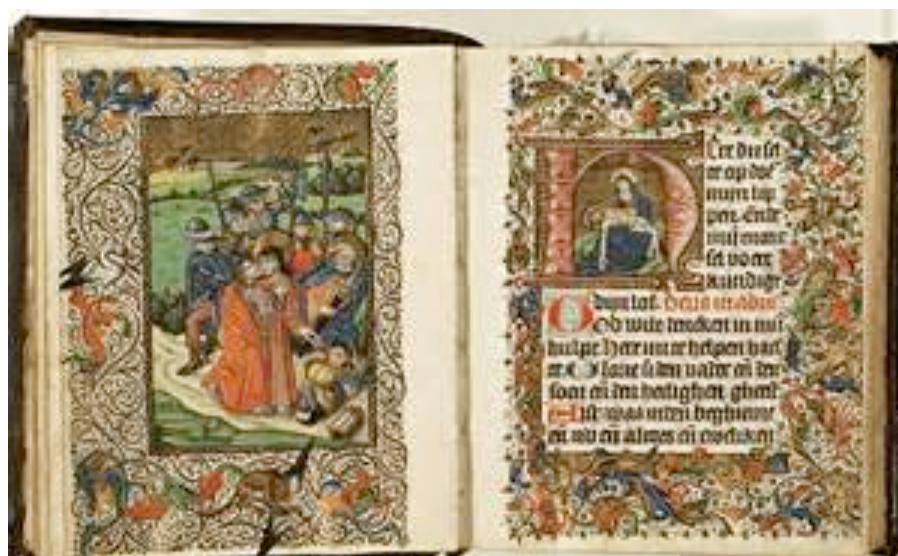 Eer du set
er op doe
mijn lip
pen. Ende
mijn mont
sel voer
kundigē
dijn lof. Deus in adiu
God wilt dencken in mii
hulpe. Heer mi te helpen haest
Glorie si den vader eñ den
soen eñ den heilighen gheest
Als was inden beghinne
eñ nv eñ altoes eñ ewelicken